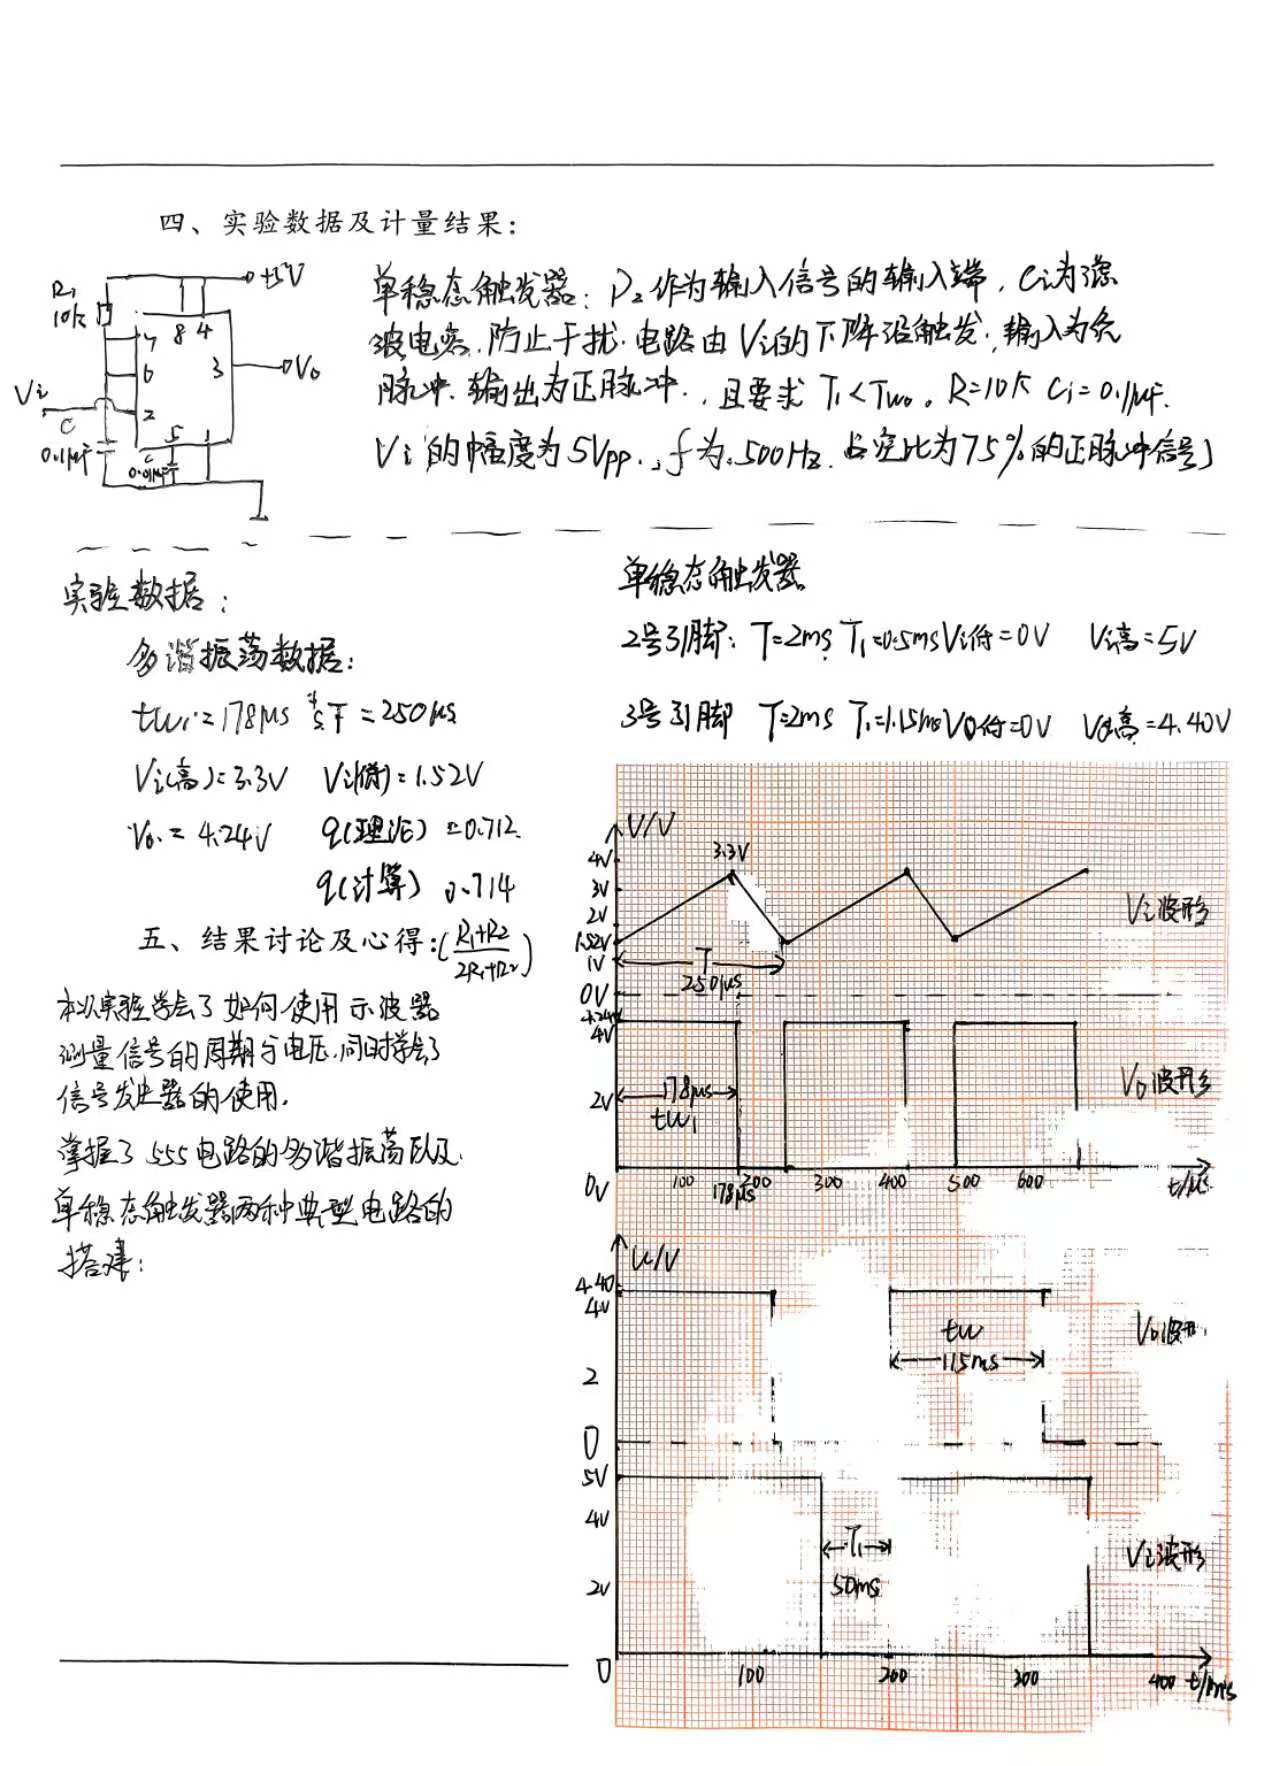 四、实验数据及计量结果:
+5V
R1
10k
7
8
4
6
3
Vo
Vi
2
C
5
1
0.1μF
C
0.01μF
单稳态触发器: P2作为输入信号的输入端, Ci为滤
波电容.防止干扰.电路由Vi的下降沿触发,输入为负
脉冲.输出为正脉冲.,且要求T1<Two。R=10K Ci=0.1μF.
Vi的幅度为5Vpp.,f为.500Hz.占空比为75%的正脉冲信号)
实验数据:
多谐振荡数据:
tw1=178μs T=250μs
Vi(高)=3.3V Vi(低)=1.52V
Vo.=4.24V q(理论)=0.712
q(计算) 0.714
五、结果讨论及心得:(R1+R2/2R1+R2)
本次实验学会了如何使用示波器
测量信号的周期与电压.同时学会了
信号发生器的使用.
掌握了555电路的多谐振荡以及
单稳态触发器两种典型电路的
搭建:
单稳态触发器
2号引脚: T=2ms T1=0.5ms Vi低=0V Vi高=5V
3号引脚 T=2ms T1=1.15ms Vo低=0V Vo高=4.40V
V/V
4V
3.3V
3V
2V
1.52V
1V
Vi波形
T
250μs
0V
4.24V
4V
2V
178μs
tw1
Vo波形
0V
100
200
300
400
500
600
t/μs
178μs
u/V
4.40
4V
tw
115ms
Vo波形
2
0
5V
4V
T1
50ms
Vi波形
2V
0
100
200
300
400
t/ms